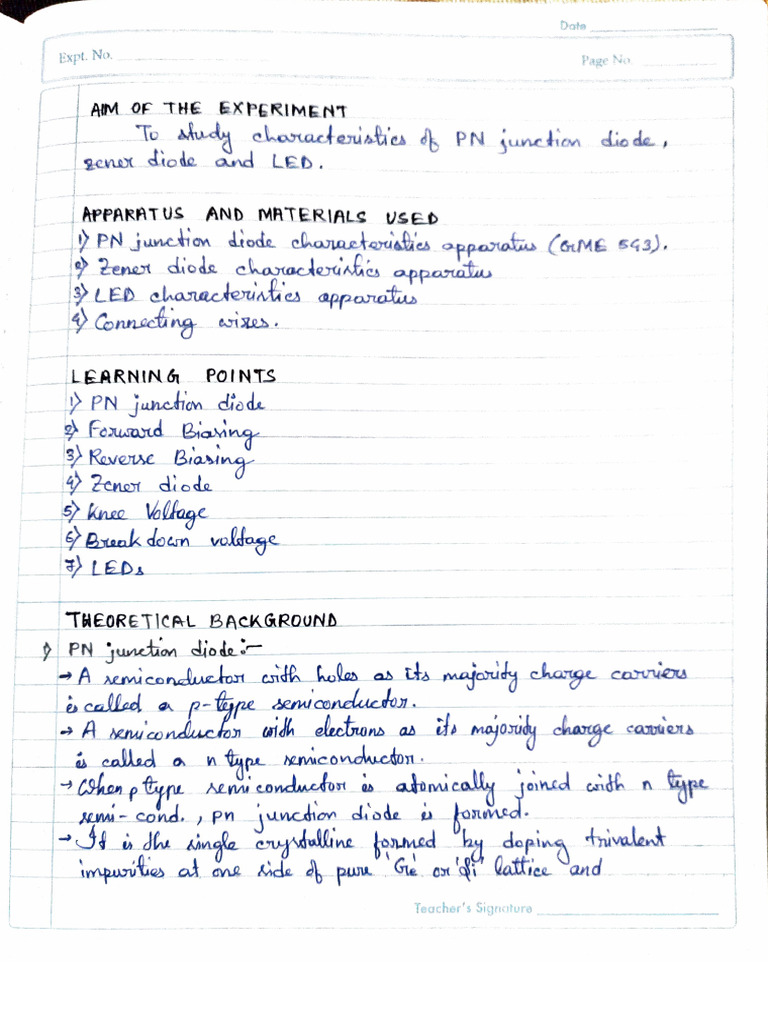 Date
Expt. No.
Page No.
AIM OF THE EXPERIMENT
To study characteristics of PN junction diode,
zener diode and LED.
APPARATUS AND MATERIALS USED
1) PN junction diode characteristics apparatus (GME 543).
2) Zener diode characteristics apparatus
3) LED characteristics apparatus
4) Connecting wires.
LEARNING POINTS
1) PN junction diode
2) Forward Biasing
3) Reverse Biasing
4) Zener diode
5) Knee Voltage
6) Breakdown voltage
7) LEDs
THEORETICAL BACKGROUND
1) PN junction diode:-
→ A semiconductor with holes as its majority charge carriers
is called a p-type semiconductor.
→ A semiconductor with electrons as its majority charge carriers
is called a n type semiconductor.
→ When p type semiconductor is atomically joined with n type
semi-cond., pn junction diode is formed.
→ It is the single crystalline formed by doping trivalent
impurities at one side of pure 'Ge' or 'Si' lattice and
Teacher's Signature